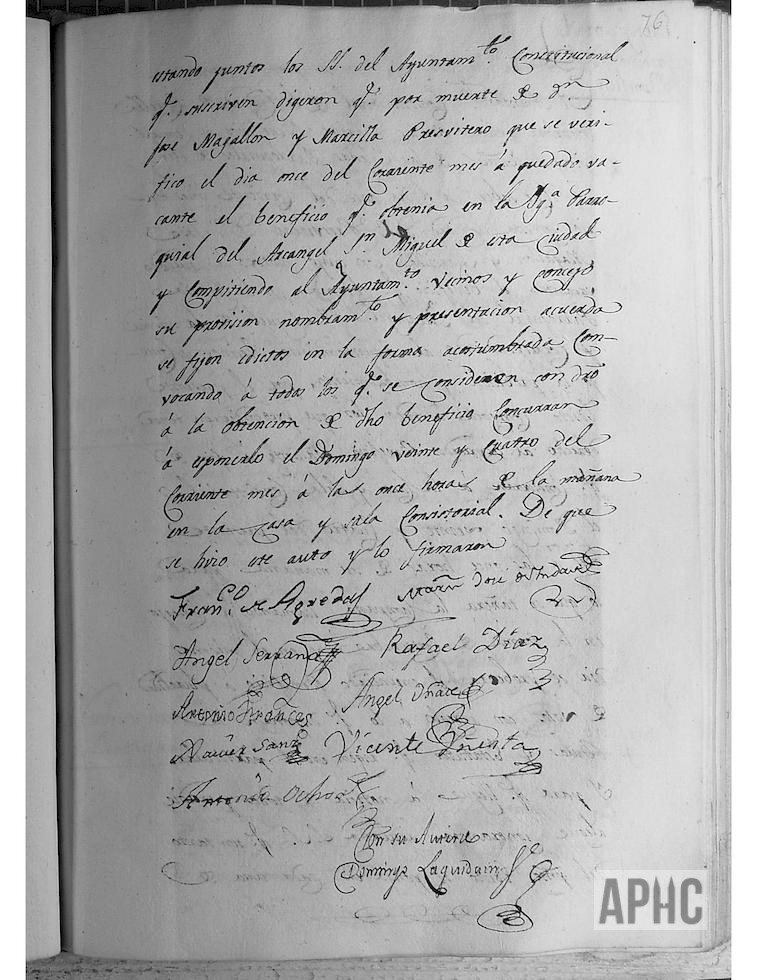 76
estando juntos los SS. del Ayuntam.to Constitucional
q.e suscriven digeron q.e por muerte de Dn
Jose Magallon y Marcilla Presvitero que se veri-
fico el dia once del Corriente mes á quedado va-
cante el beneficio q.e obtenia en la Ygª Parro-
quial del Arcangel Sn Miguel de esta ciudad
y Compitiendo al Ayuntam.to vecinos y concejo
su provision nombram.to y presentacion acuerda
se fijen edictos en la forma acostumbrada Con-
vocando á todos los q.e se consideren con dro
á la obtencion de dho beneficio Concurran
á esponerlo el Domingo veinte y Cuatro del
Corriente mes á las once horas de la mañana
en la Casa y sala Consistorial. De que
se hizo este auto y lo firmaron
Fran.co de Agreda Martin Jose de
Angel Serrano Rafael Díaz
Antonio Frances Angel Oñate
Xavier Sanz Vicente Pueyta
Antonio Ochoa
Con su Acuerdo
Domingo Laquidain S.
APHC